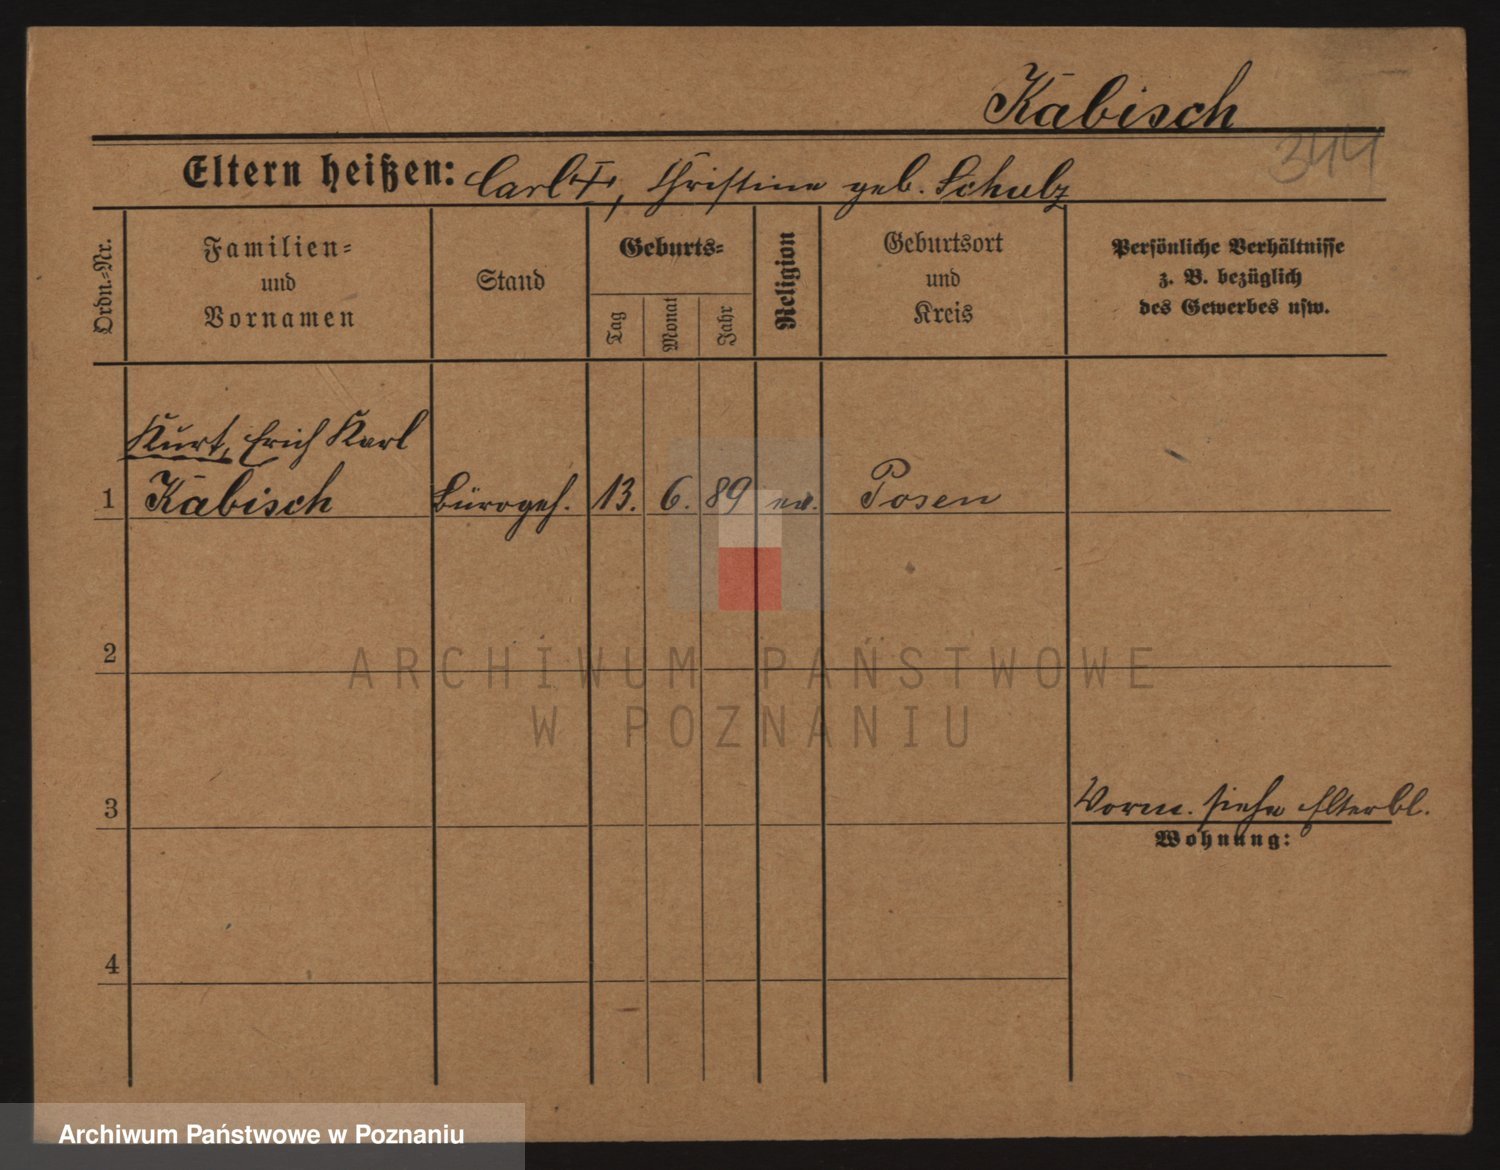 Kabisch
344
Eltern heißen: Carl †, Christine geb. Schulz
Ordn.-Nr.
Familien-
und
Vornamen
Stand
Geburts-
Tag
Monat
Jahr
Religion
Geburtsort
und
Kreis
Persönliche Verhältnisse
z. B. bezüglich
des Gewerbes usw.
Kurt, Erich Karl
1 Kabisch Bürogeh. 13. 6. 89 ev. Posen
2
ARCHIWUM PAŃSTWOWE
W POZNANIU
3 Vorm. siehe Elterbl.
Wohnung:
4
Archiwum Państwowe w Poznaniu